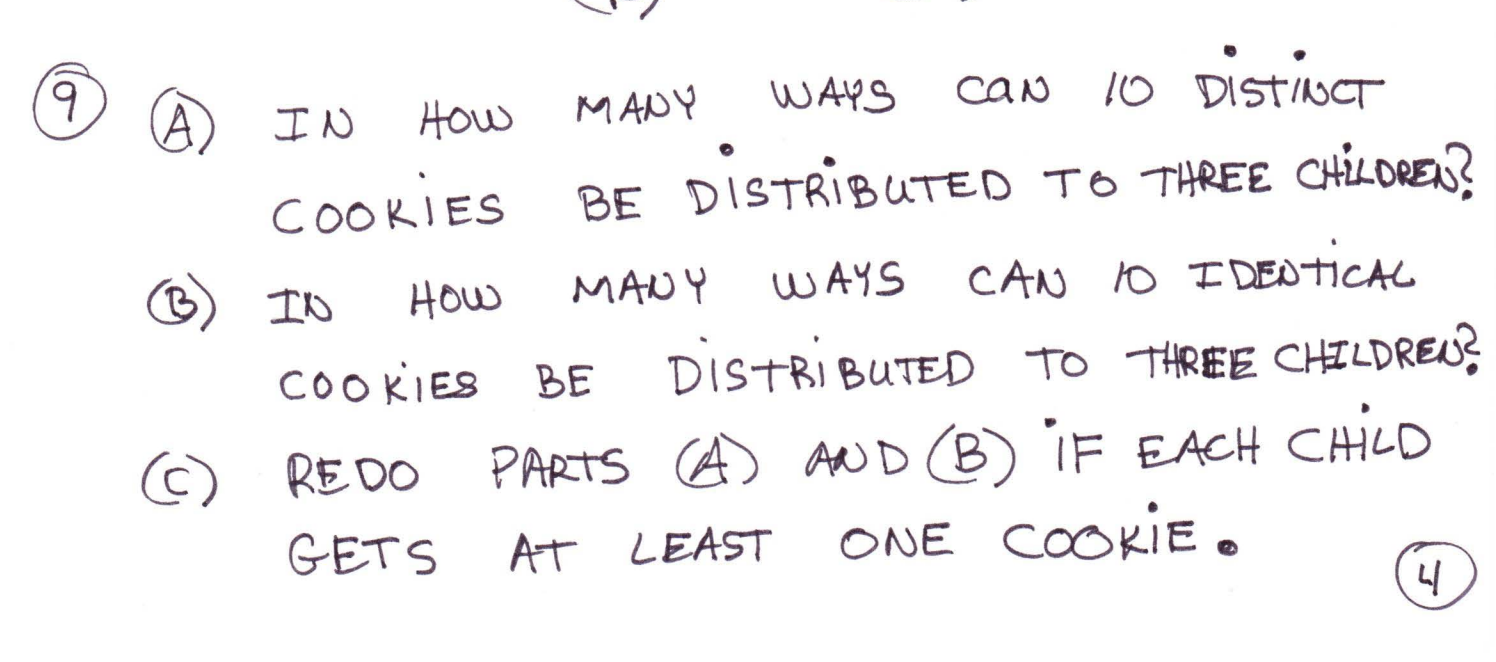 9 (A) IN HOW MANY WAYS CAN 10 DISTINCT
COOKIES BE DISTRIBUTED TO THREE CHILDREN?
(B) IN HOW MANY WAYS CAN 10 IDENTICAL
COOKIES BE DISTRIBUTED TO THREE CHILDREN?
(C) REDO PARTS (A) AND (B) IF EACH CHILD
GETS AT LEAST ONE COOKIE.
4